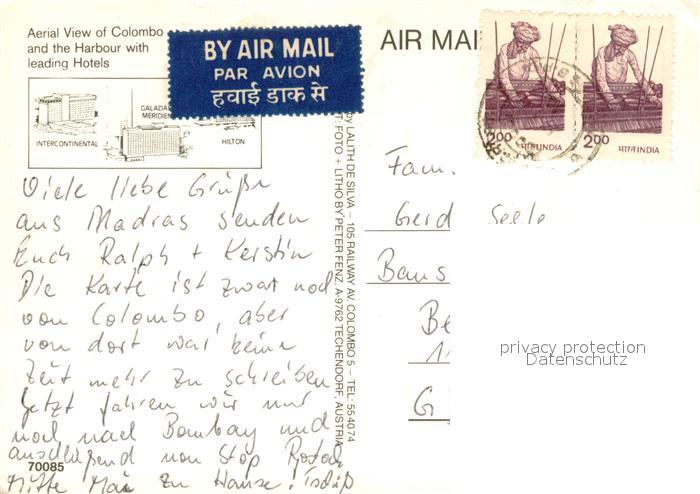 Aerial View of Colombo
and the Harbour with
leading Hotels
BY AIR MAIL
PAR AVION
हवाई डाक से
AIR MAI
GALADA
MERIDIEN
INTERCONTINENTAL
HILTON
2.00 भारत INDIA
2.00 भारत INDIA
Viele liebe Grüße
aus Madras senden
Euch Ralph + Kerstin
Die Karte ist zwar noch
von Colombo, aber
von dort war keine
Zeit mehr zu schreiben
Jetzt fahren wir nur
noch nach Bombay und
anschließend non Stop Rostock
Mitte Mai zu Hause. Tschüß
70085
by LALITH DE SILVA – 105 RAILWAY AV. COLOMBO 5 – TEL: 554074
T: FOTO + LITHO BY PETER FENZ, A-9762 TECHENDORF, AUSTRIA
Fam.
Gerd Seele
Bans
Be
G
privacy protection
Datenschutz